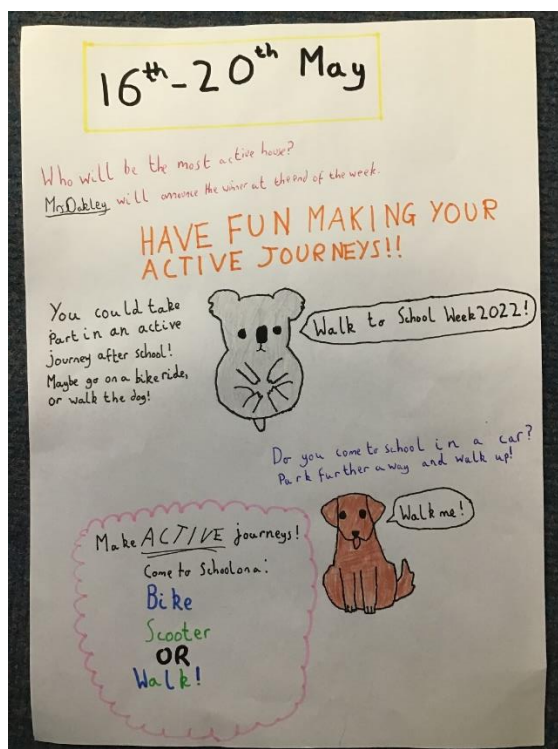 16th-20th May
Who will be the most active house?
Mrs Oakley will announce the winner at the end of the week.
HAVE FUN MAKING YOUR
ACTIVE JOURNEYS!!
You could take
Part in an active
journey after school!
Maybe go on a bike ride,
or walk the dog!
Walk to School Week 2022!
Do you come to school in a car?
Park further away and walk up!
Walk me!
Make ACTIVE journeys!
Come to School on a:
Bike
Scooter
OR
Walk!